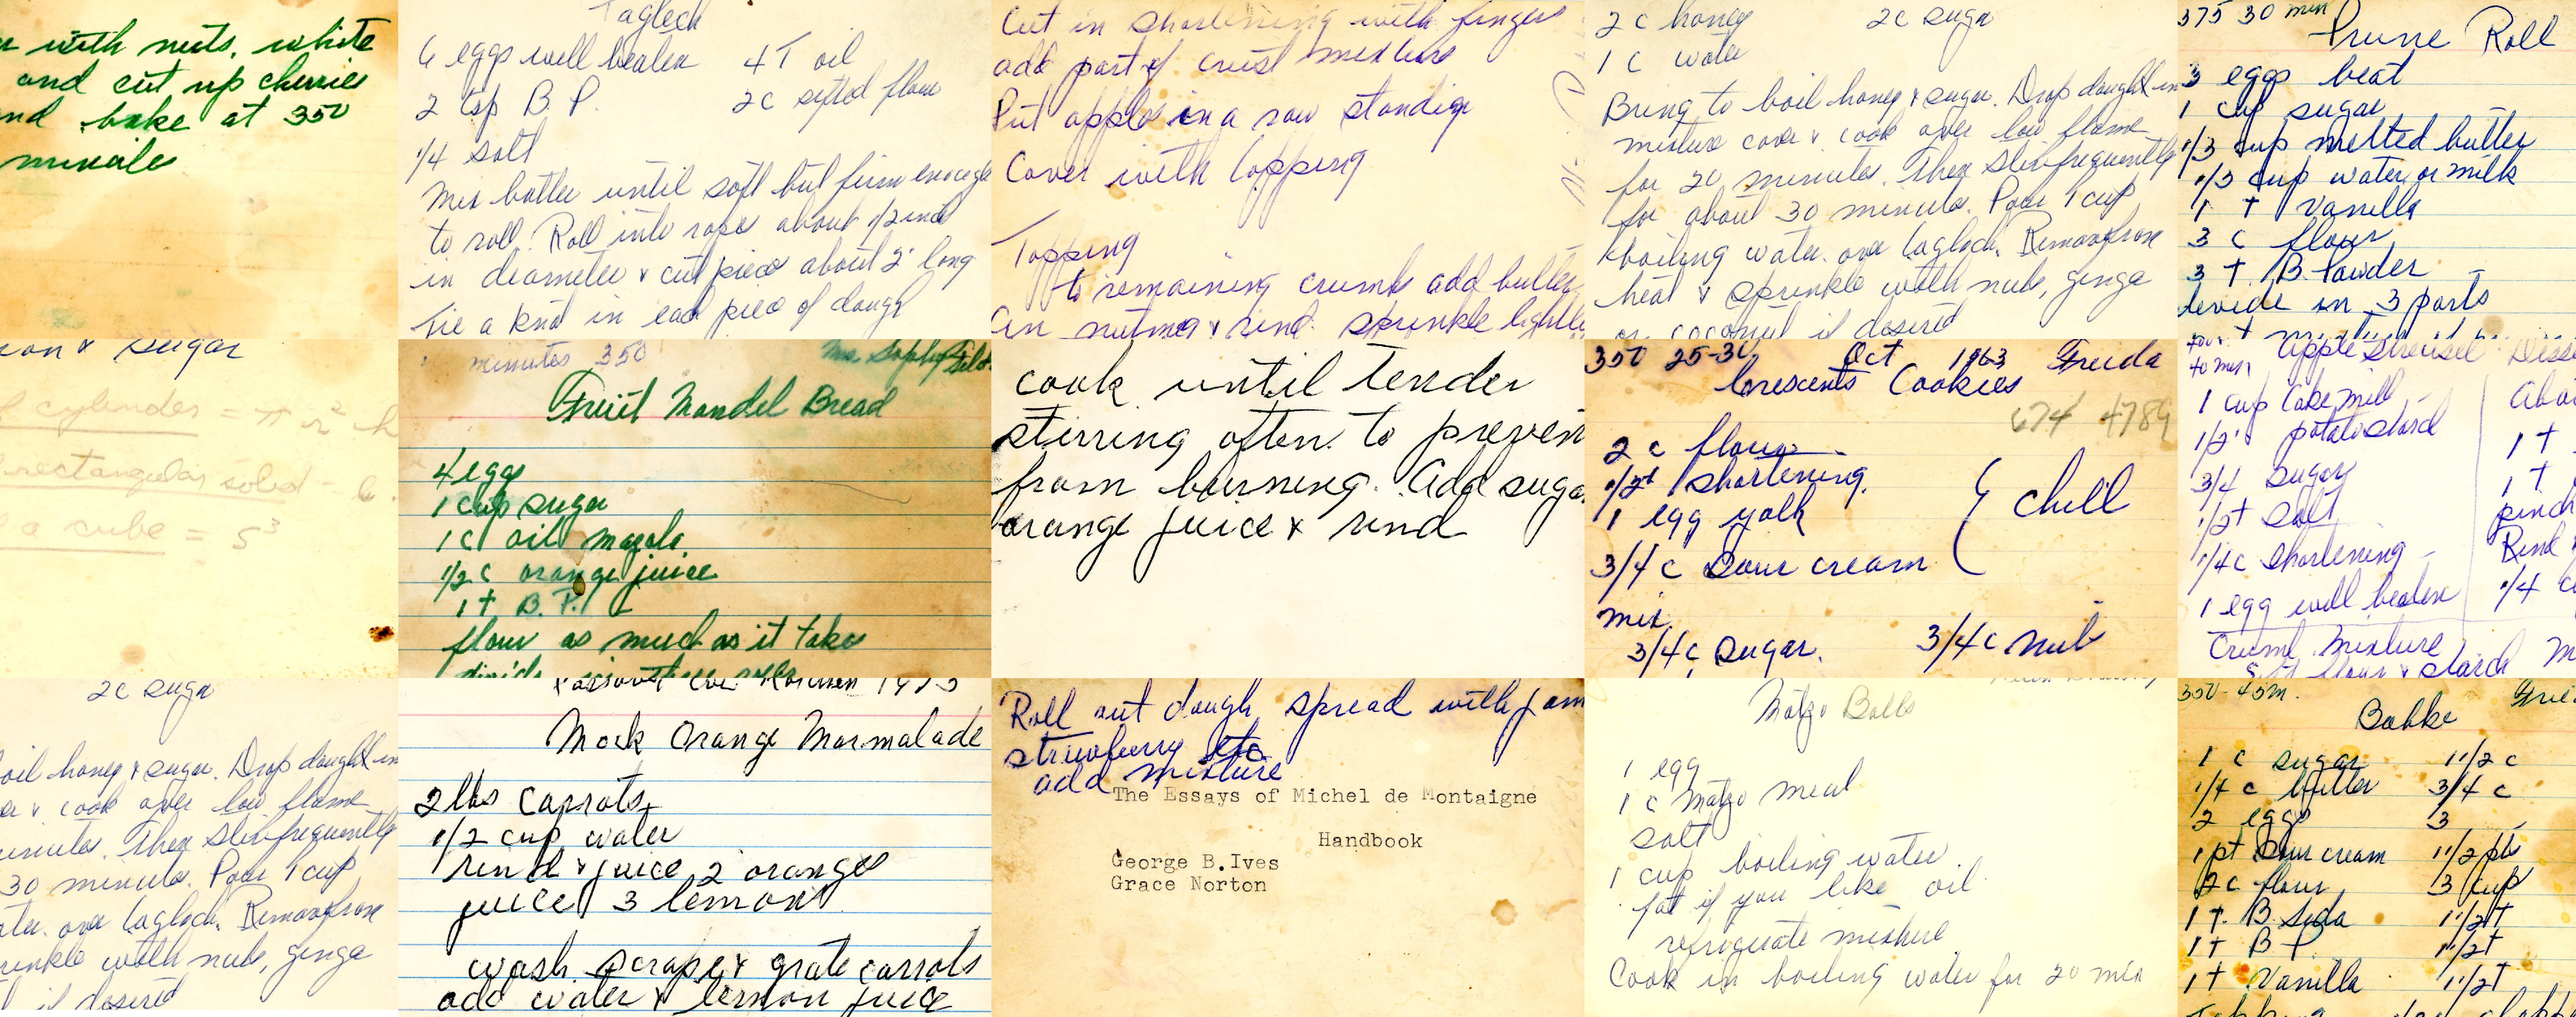 with nuts, white
and cut up cherries
bake at 350
Taglech
6 eggs well beaten 4 T oil
2 tsp B P. 2c sifted flour
1/4 salt
Mix batter until soft but firm enough
to roll. Roll into rope about 1/2 inch
in diameter & cut piece about 2" long
Tie a knot in each piece of dough
Cut in shortening with fingers
add part of crust mixture
Put apples in a row standing
Cover with topping
Topping
to remaining crumbs add butter
nutmeg & rind. sprinkle lightly
2 c honey 2c sugar
1 c water
Bring to boil honey & sugar. Drop dough in
mixture cover & cook over low flame
for 20 minutes. Then stir frequently
for about 30 minutes. Pour 1 cup
boiling water over taglech. Remove from
heat & sprinkle with nuts, ginger
or coconut if desired
375 30 min
Prune Roll
3 eggs beat
1 cup sugar
1/3 cup melted butter
1/3 cup water or milk
1 T vanilla
3 c flour
3 T. B. Powder
devide in 3 parts
& sugar
cylinder = π r² h
rectangular solid =
a cube = S³
minutes 350
Fruit Mandel Bread
4 eggs
1 cup sugar
1 c oil mazola
1/2 c orange juice
1 t B. P.
flour as much as it takes
cook until tender
stirring often to preven
from burning. Add suga
orange juice & rind
350 25-30 Oct 1963 Freda
Crescents Cookies
674 4789
2 c flour
1/2 shortening
1 egg yolk
3/4 c sour cream
chill
mix
3/4 c sugar. 3/4 c nuts
Apple Streusel
1 cup cake
1/2 potato starch
3/4 sugar
1/2 t salt
1/4 c shortening
1 egg well beaten
Crumb mixture
1 t
1 t
pinch
Rind
1/4 c
2c sugar
oil honey & sugar. Drop dough in
& cook over low flame
minutes. Then stir frequently
30 minutes. Pour 1 cup
over taglech. Remove from
rinkle with nuts, ginger
if desired
Mock Orange Marmalade
2 lbs carrots
1/2 cup water
rind & juice 2 oranges
juice 3 lemons
wash scrape & grate carrots
add water & lemon juice
Roll out dough spread with jam
strawberry etc
add mixture
The Essays of Michel de Montaigne
Handbook
George B. Ives
Grace Norton
Matzo Balls
1 egg
1 c Matzo meal
salt
1 cup boiling water
fat if you like oil
refrigerate mixture
Cook in boiling water for 20 min
350 - 45m.
Babke
1 c sugar 1 1/2 c
1/4 c butter 3/4 c
2 eggs 3
1 pt sour cream 1 1/2 pts
2c flour 3 cup
1 T. B. Soda 1 1/2 T
1 t B P. 1 1/2 t
1 t Vanilla 1 1/2 T